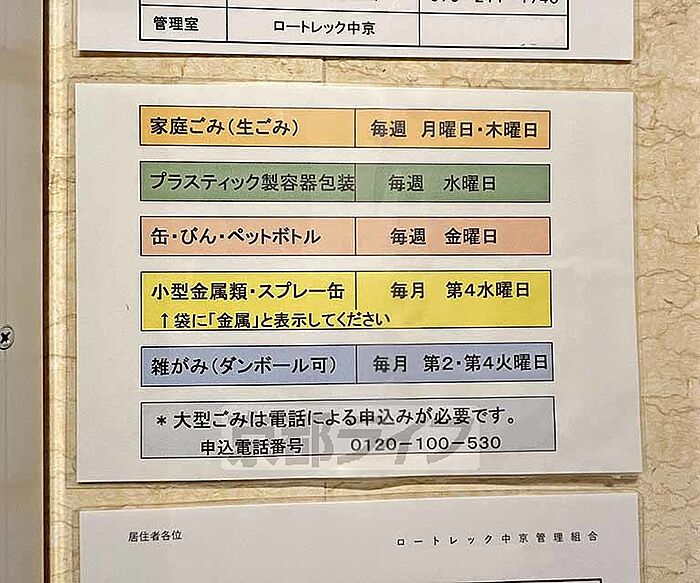 管理室 ロートレック中京
家庭ごみ(生ごみ) 毎週 月曜日・木曜日
プラスティック製容器包装 毎週 水曜日
缶・びん・ペットボトル 毎週 金曜日
小型金属類・スプレー缶 毎月 第4水曜日
↑袋に「金属」と表示してください
雑がみ(ダンボール可) 毎月 第2・第4火曜日
*大型ごみは電話による申込みが必要です。
申込電話番号 0120-100-530
京都ライフ
居住者各位 ロートレック中京管理組合